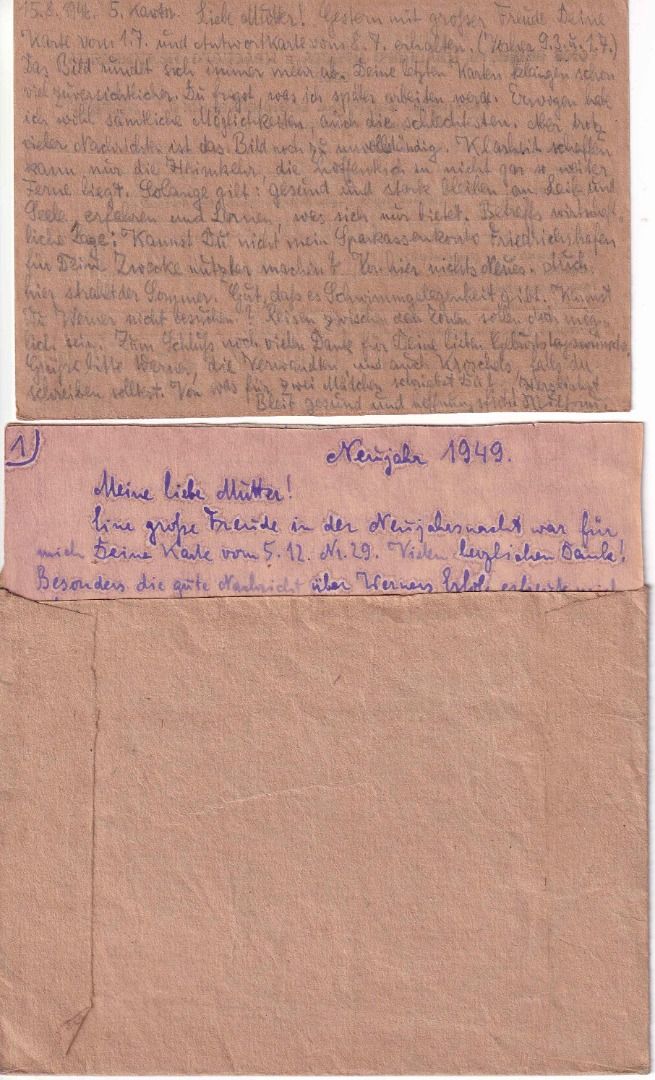 15.8.1946. 5. Karte. Liebe Mutter! Gestern mit großer Freude Deine
Karte vom 1.7. und Antwortkarte vom 8.7. erhalten.
Das Bild rundet sich immer mehr ab. Deine letzten Karten klingen schon
viel zuversichtlicher. Du fragst, was ich später arbeiten werde. Erwogen habe
ich wohl sämtliche Möglichkeiten, auch die schlechtesten. Aber trotz
vieler Nachrichten ist das Bild noch zu unvollständig. Klarheit schaffen
kann nur die Heimkehr, die hoffentlich in nicht gar so weiter
Ferne liegt. Solange gilt: gesund und stark bleiben an Leib und
Seele, erfahren und lernen, was sich nur bietet. Betreffs wirtschaft-
liche Lage: Kannst Du nicht mein Sparkassenkonto Friedrichshafen
für Deine Zwecke nutzbar machen? Von hier nichts Neues. Auch
hier strahlt der Sommer. Gut, daß es Schwimmgelegenheit gibt. Kannst
Du Werner nicht besuchen? Reisen zwischen den Zonen sollen doch mög-
lich sein. Zum Schluß noch vielen Dank für Deine lieben Geburtstagswünsche.
Grüße bitte Werner, die Verwandten, und auch Kroschels, falls du
schreiben solltest. Von was für zwei Mädchen schreibst Du?
Bleib gesund und
1)
Neujahr 1949.
Meine liebe Mutter!
Eine große Freude in der Neujahrsnacht war für
mich Deine Karte vom 5.12. Nr. 29. Vielen herzlichen Dank!
Besonders die gute Nachricht über Werners